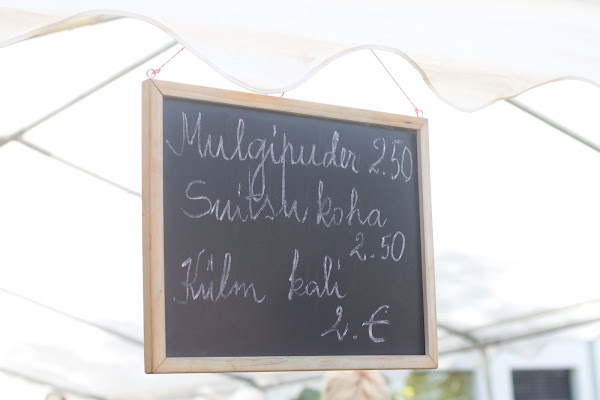 Mulgipuder 2.50
Suitsu koha
2.50
Külm kali
2. €